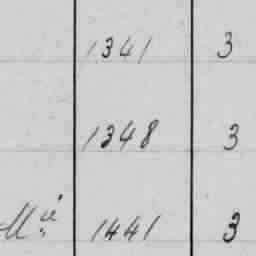 1341 3
1348 3
1441 3